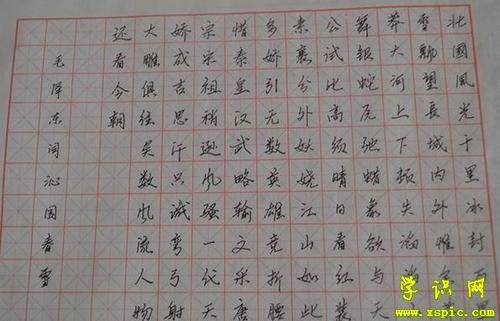 北國風光千里冰封
雪飘望長城内外惟
莽大河上下顿失滔
舞银蛇原驰蜡象欲与天
公试比高须晴日看红装
素裹分外妖娆江山如此
多娇引无数英雄竞折腰
惜秦皇汉武略输文采唐
宗宋祖稍逊风骚一代天
娇成吉思汗只识弯弓射
大雕俱往矣数风流人物
还看今朝
毛泽东词沁园春雪
学识网
www.xspic.com